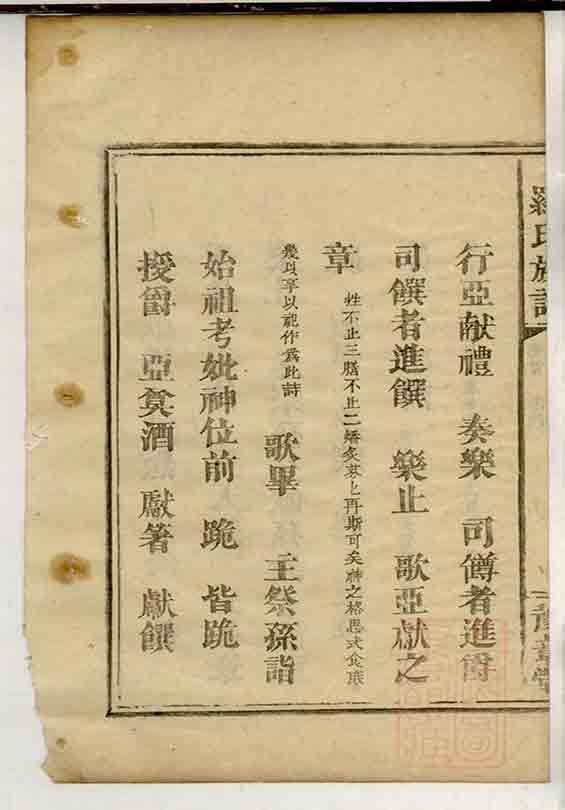 羅氏族譜
豫章堂
行亞献禮 奏樂 司僔者進爵
司饌者進饌 樂止 歌亞献之
章 牲不止三醑不止二燔炙芬七再斯可矣神之格思式食庶
幾以享以祀作爲此詩 歌畢 主祭孫詣
始祖考妣神位前 跪 皆跪
授爵 亞奠酒 献箸 献饌